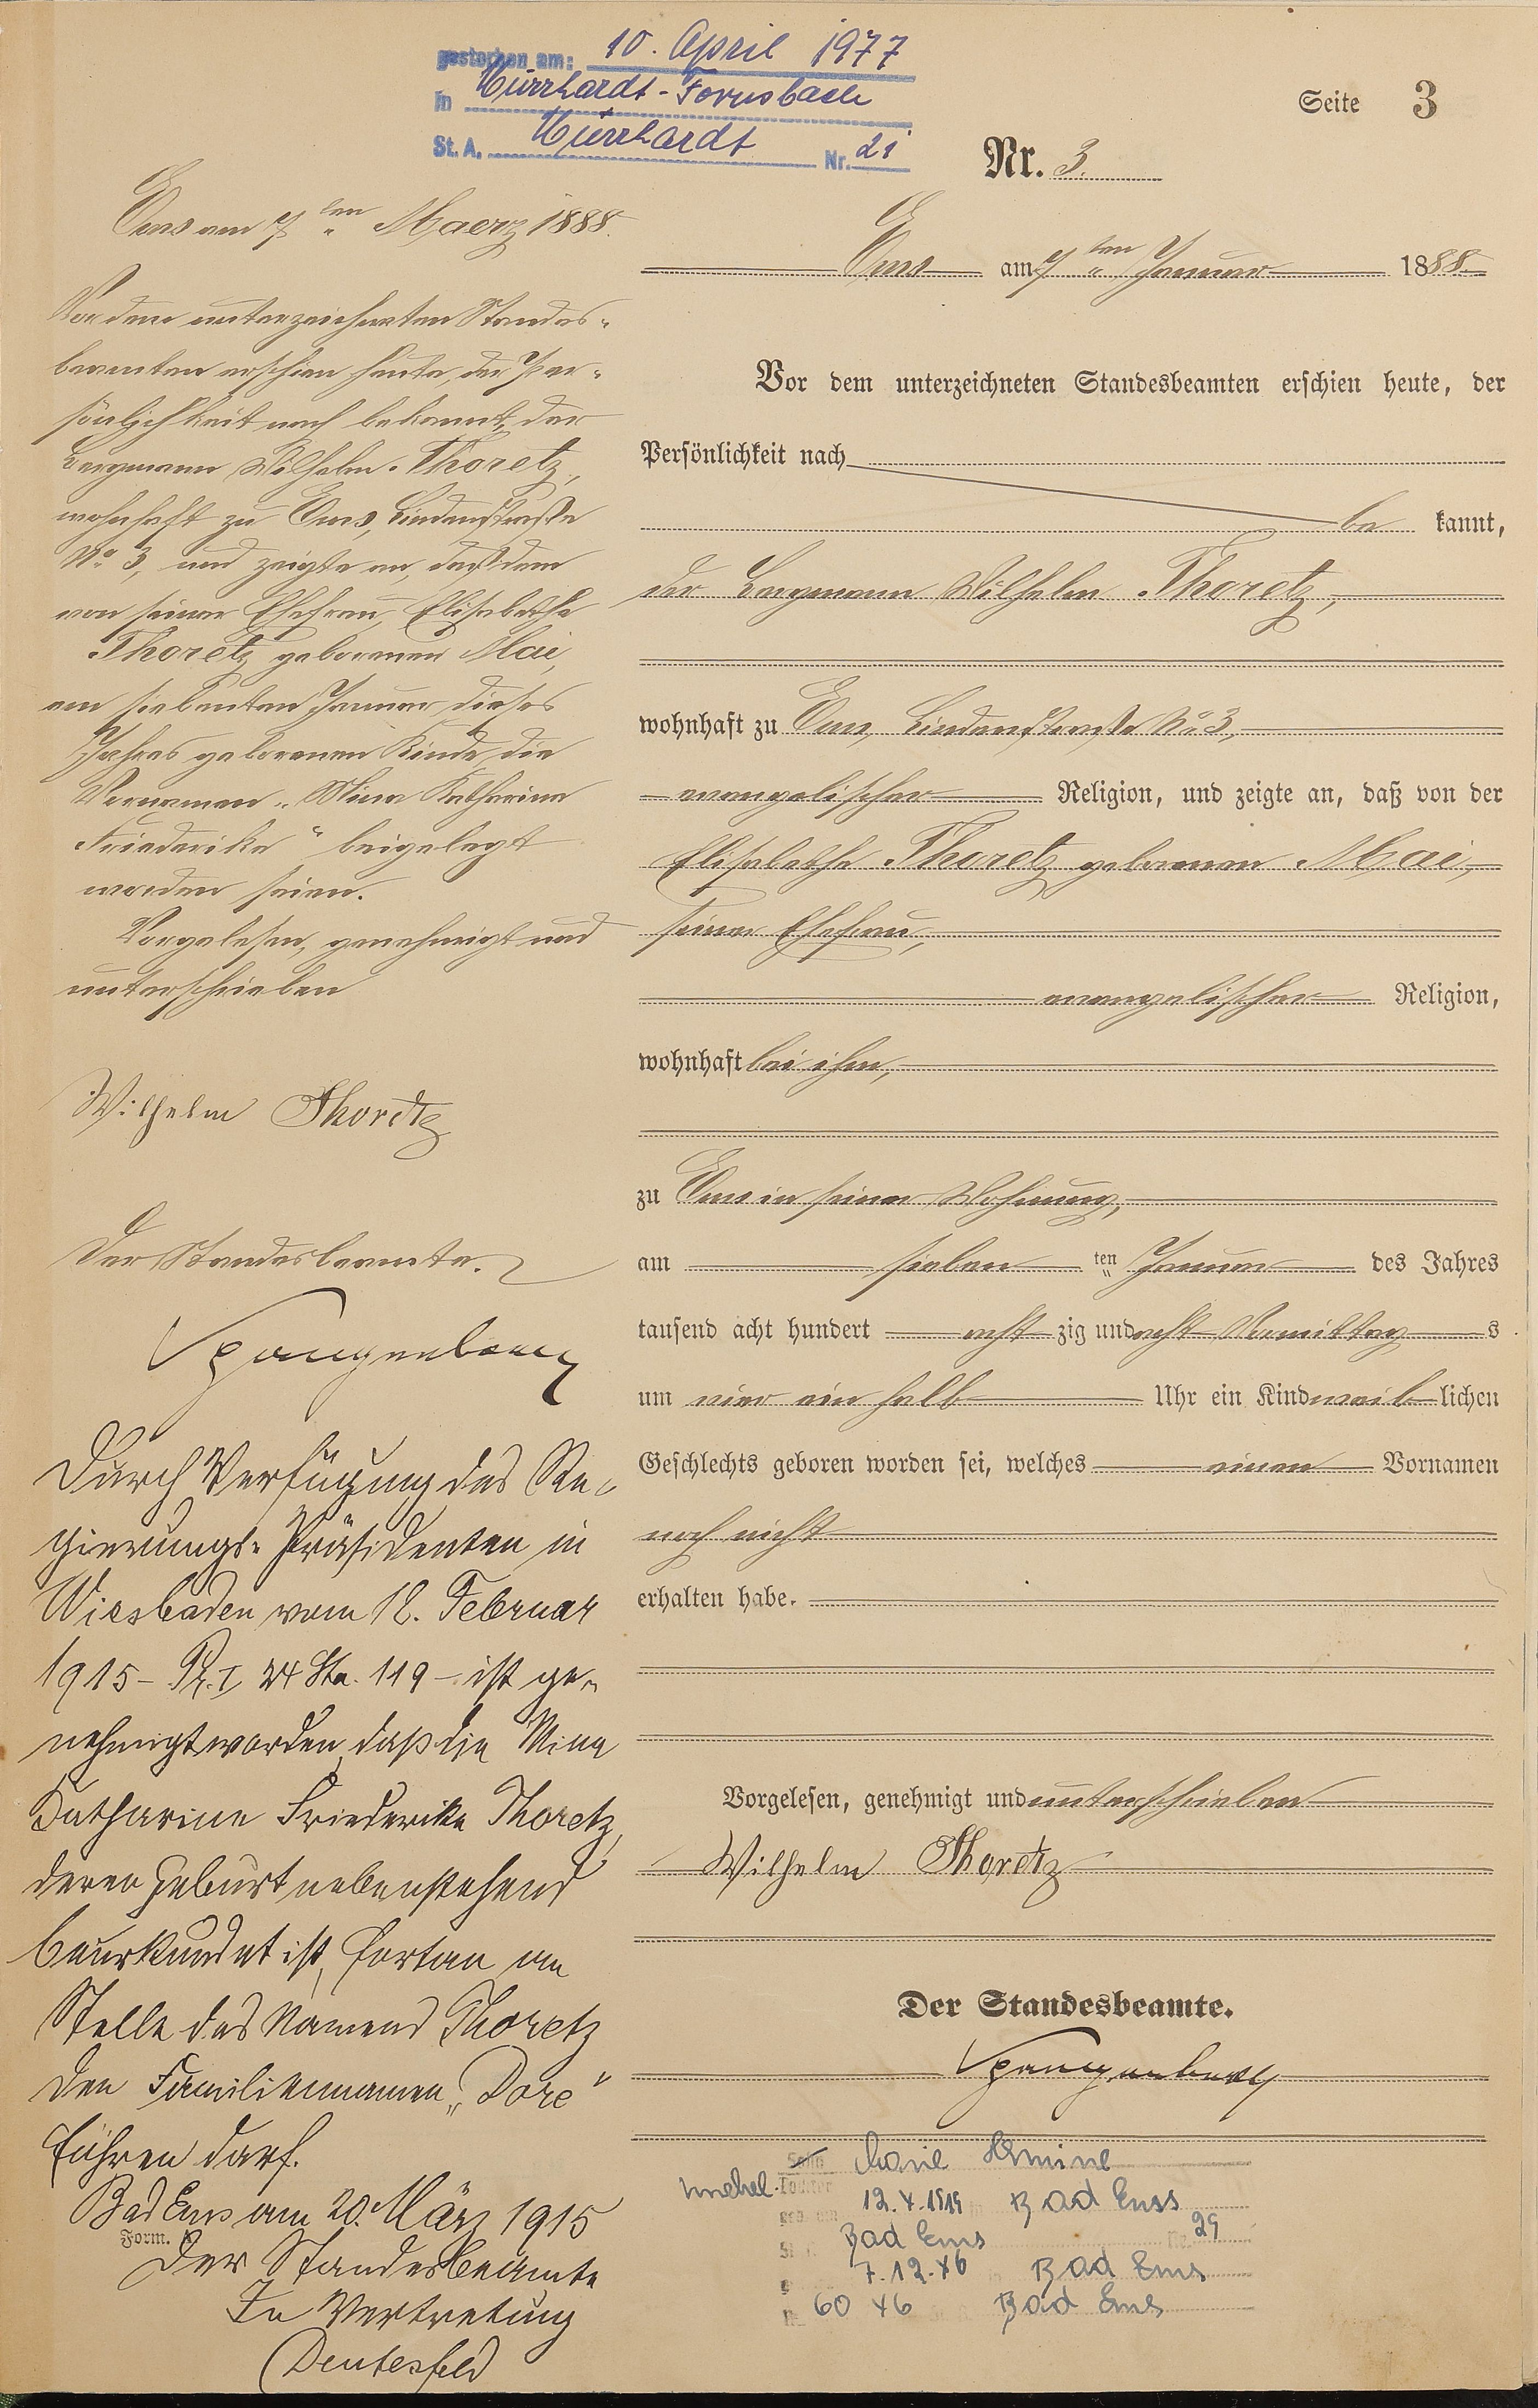 gestorben am: 10. April 1977
in Murrhardt-Fornsbach
St. A. Murrhardt Nr. 21
Seite 3
Nr. 3.
Ems am 7ten Maerz 1888.
Vor dem unterzeichneten Standes-
beamten erschien heute, der Per-
sönlichkeit nach bekannt, der
Bergmann Wilhelm Thoretz,
wohnhaft zu Ems, Lindenstraße
No. 3, und zeigte an, daß dem
von seiner Ehefrau, Elisabethe
Thoretz geborenen Mai,
am siebenten Januar dieses
Jahres geborenen Kinde, die
Vornamen „Mina Katharina
Friederike“ beigelegt
worden seien.
Vorgelesen, genehmigt und
unterschrieben
Wilhelm Thoretz
Der Standesbeamte.
Spangenberg
Durch Verfügung des Re-
gierungs-Präsidenten in
Wiesbaden vom 12. Februar
1915 – Pr. I 24 Sta. 119 – ist ge-
nehmigt worden, daß die Mina
Katharine Friederike Thoretz,
deren Geburt nebenstehend
beurkundet ist, fortan an
Stelle des Namens Thoretz
den Familiennamen „Dore“
führen darf.
Bad Ems am 20. März 1915
Form. A
Der Standesbeamte
In Vertretung
Ems am 7ten Januar 1888.
Vor dem unterzeichneten Standesbeamten erschien heute, der
Persönlichkeit nach
be kannt,
der Bergmann Wilhelm Thoretz,
wohnhaft zu Ems, Lindenstraße No. 3,
evangelischer Religion, und zeigte an, daß von der
Elisabethe Thoretz geborenen Mai,
seiner Ehefrau,
evangelischer Religion,
wohnhaft bei ihm,
zu Ems in seiner Wohnung,
am sieben ten Januar des Jahres
tausend acht hundert acht zig und acht Vormittag s
um vier ein halb Uhr ein Kind weib lichen
Geschlechts geboren worden sei, welches einen Vornamen
noch nicht
erhalten habe.
Vorgelesen, genehmigt und unterschrieben
Wilhelm Thoretz
Der Standesbeamte.
Spangenberg
Sohn
unehel. Tochter
12. Bad Ems
Bad Ems Nr. 29
7.12.46 Bad Ems
60 46 Bad Ems